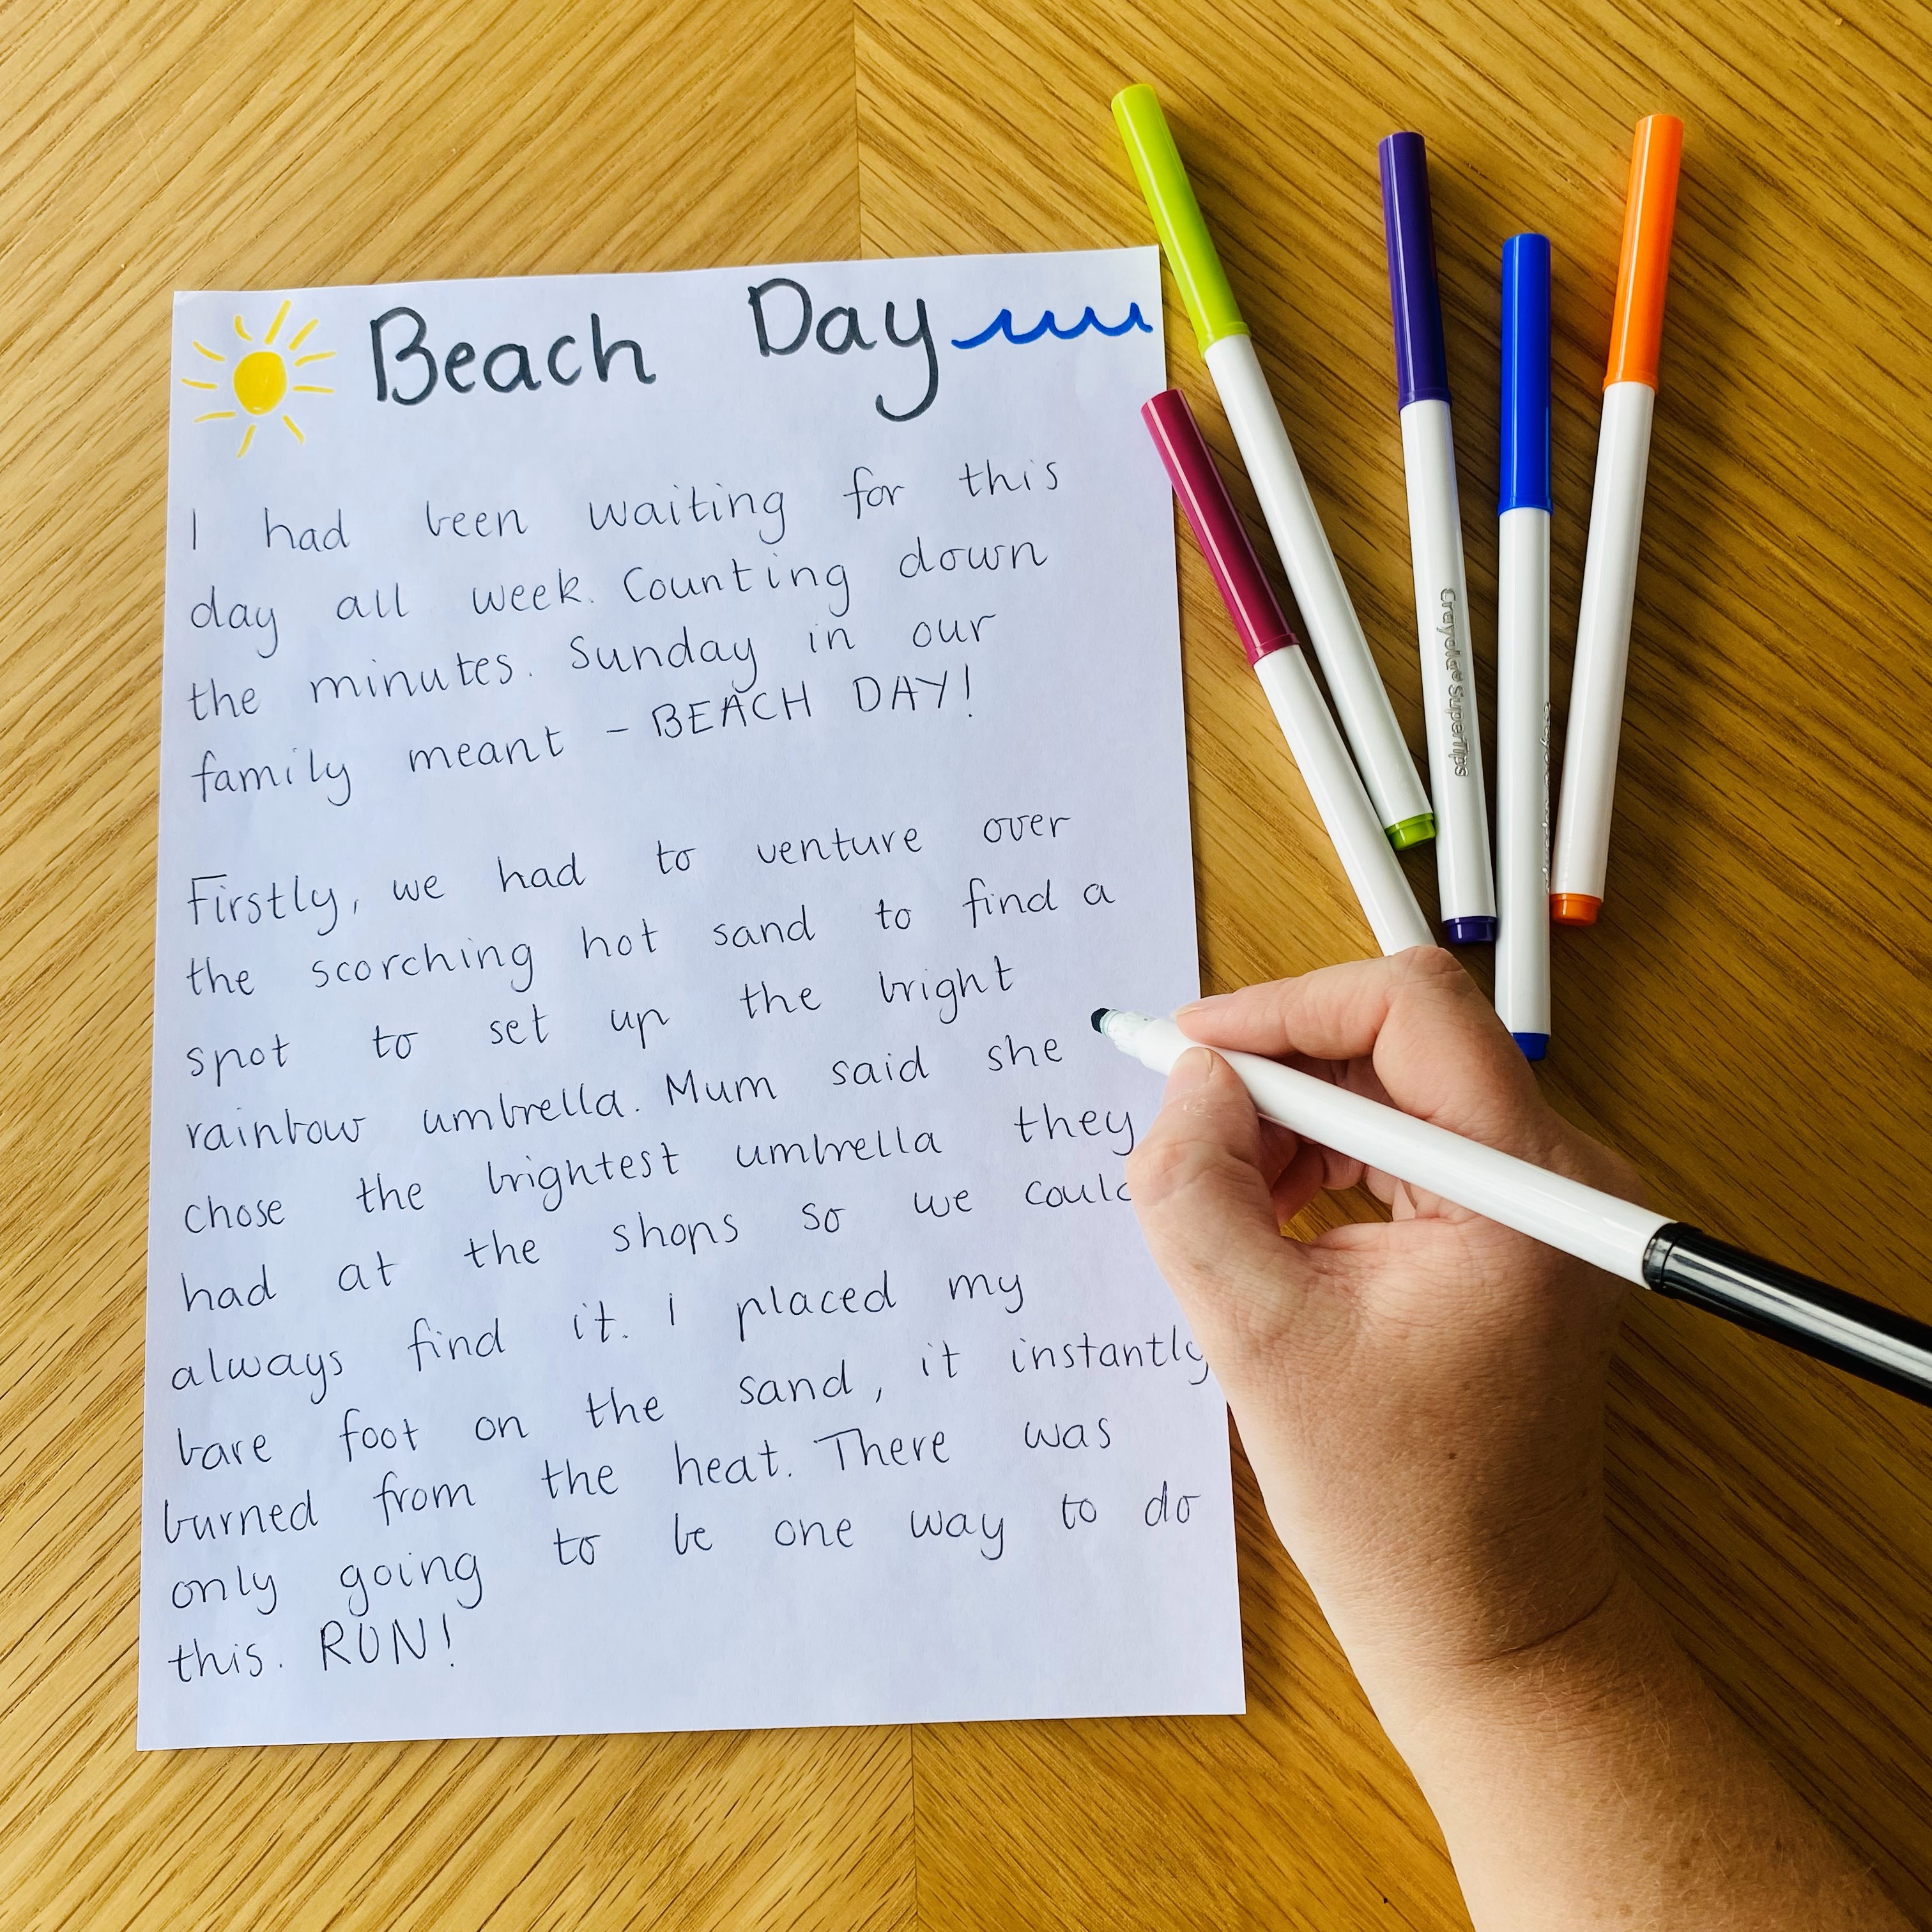 Beach Day
I had been waiting for this
day all week. Counting down
the minutes. Sunday in our
family meant - BEACH DAY!
Firstly, we had to venture over
the scorching hot sand to find a
spot to set up the bright
rainbow umbrella. Mum said she
chose the brightest umbrella they
had at the shops so we could
always find it. I placed my
bare foot on the sand, it instantly
burned from the heat. There was
only going to be one way to do
this. RUN!
Crayola SuperTips